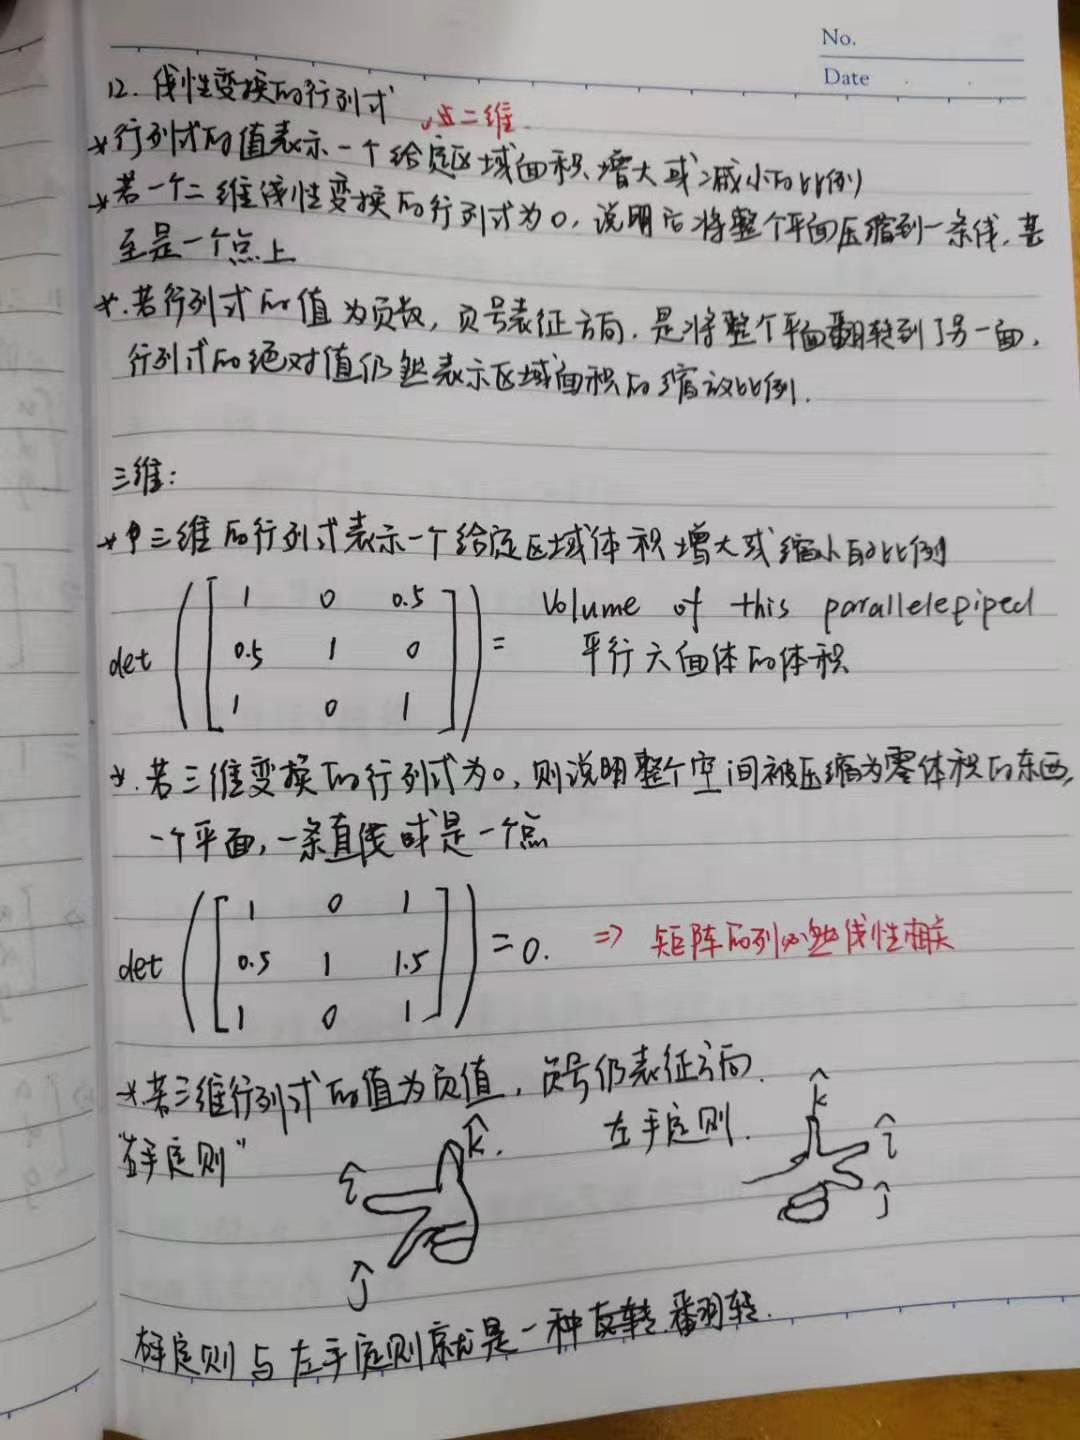 No.
Date
12. 线性变换的行列式
在二维
*行列式的值表示一个给定区域面积增大或减小的比例
*若一个二维线性变换的行列式为0,说明它将整个平面压缩到一条线,甚
至是一个点上
*.若行列式的值为负数,负号表征方向,是将整个平面翻转到了另一面,
行列式的绝对值仍然表示区域面积的缩放比例.
三维:
*三维的行列式表示一个给定区域体积增大或缩小的比例
det ([1 0 0.5
0.5 1 0
1 0 1]) = Volume of this parallelepiped
平行六面体的体积
*.若三维变换的行列式为0,则说明整个空间被压缩为零体积的东西,
一个平面,一条直线或是一个点
det ([1 0 1
0.5 1 1.5
1 0 1]) = 0. => 矩阵的列必然线性相关
*若三维行列式的值为负值,负号仍表征方向.
"右手定则" î ĵ k̂.
左手定则. k̂ î ĵ
右手定则与左手定则就是一种反转.翻转.